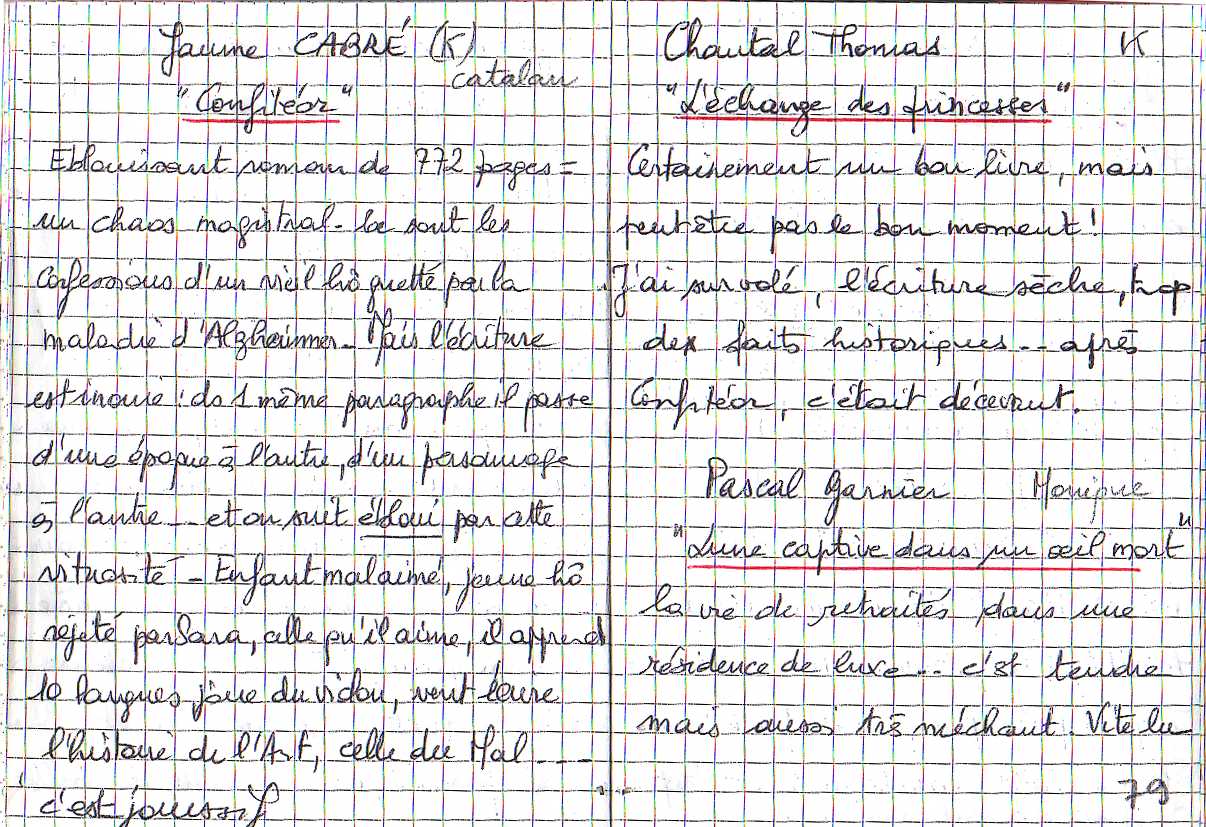 Jaume CABRÉ (K)
catalan
"Confitéor"
Eblouissant roman de 772 pages =
un chaos magistral. Ce sont les
confessions d'un vieil hô guetté par la
maladie d'Alzheimer. Mais l'écriture
est inouïe : ds 1 même paragraphe il passe
d'une époque à l'autre, d'un personnage
à l'autre... et on suit ébloui par cette
vituosité - Enfant mal aimé, jeune hô
rejeté par Sara, celle qu'il aime, il apprend
10 langues, joue du violon, veut écrire
l'histoire de l'Art, celle du Mal ....
c'est jouissif
Chantal Thomas K
"L'échange des princesses"
Certainement un bon livre, mais
peut être pas le bon moment !
J'ai survolé, l'écriture sèche, trop
des faits historiques... après
Confitéor, c'était décevant.
Pascal Garnier Monique
"Lune captive dans un oeil mort"
la vie de retraités dans une
résidence de luxe... c'est tendre
mais aussi très méchant. Vite lu
79